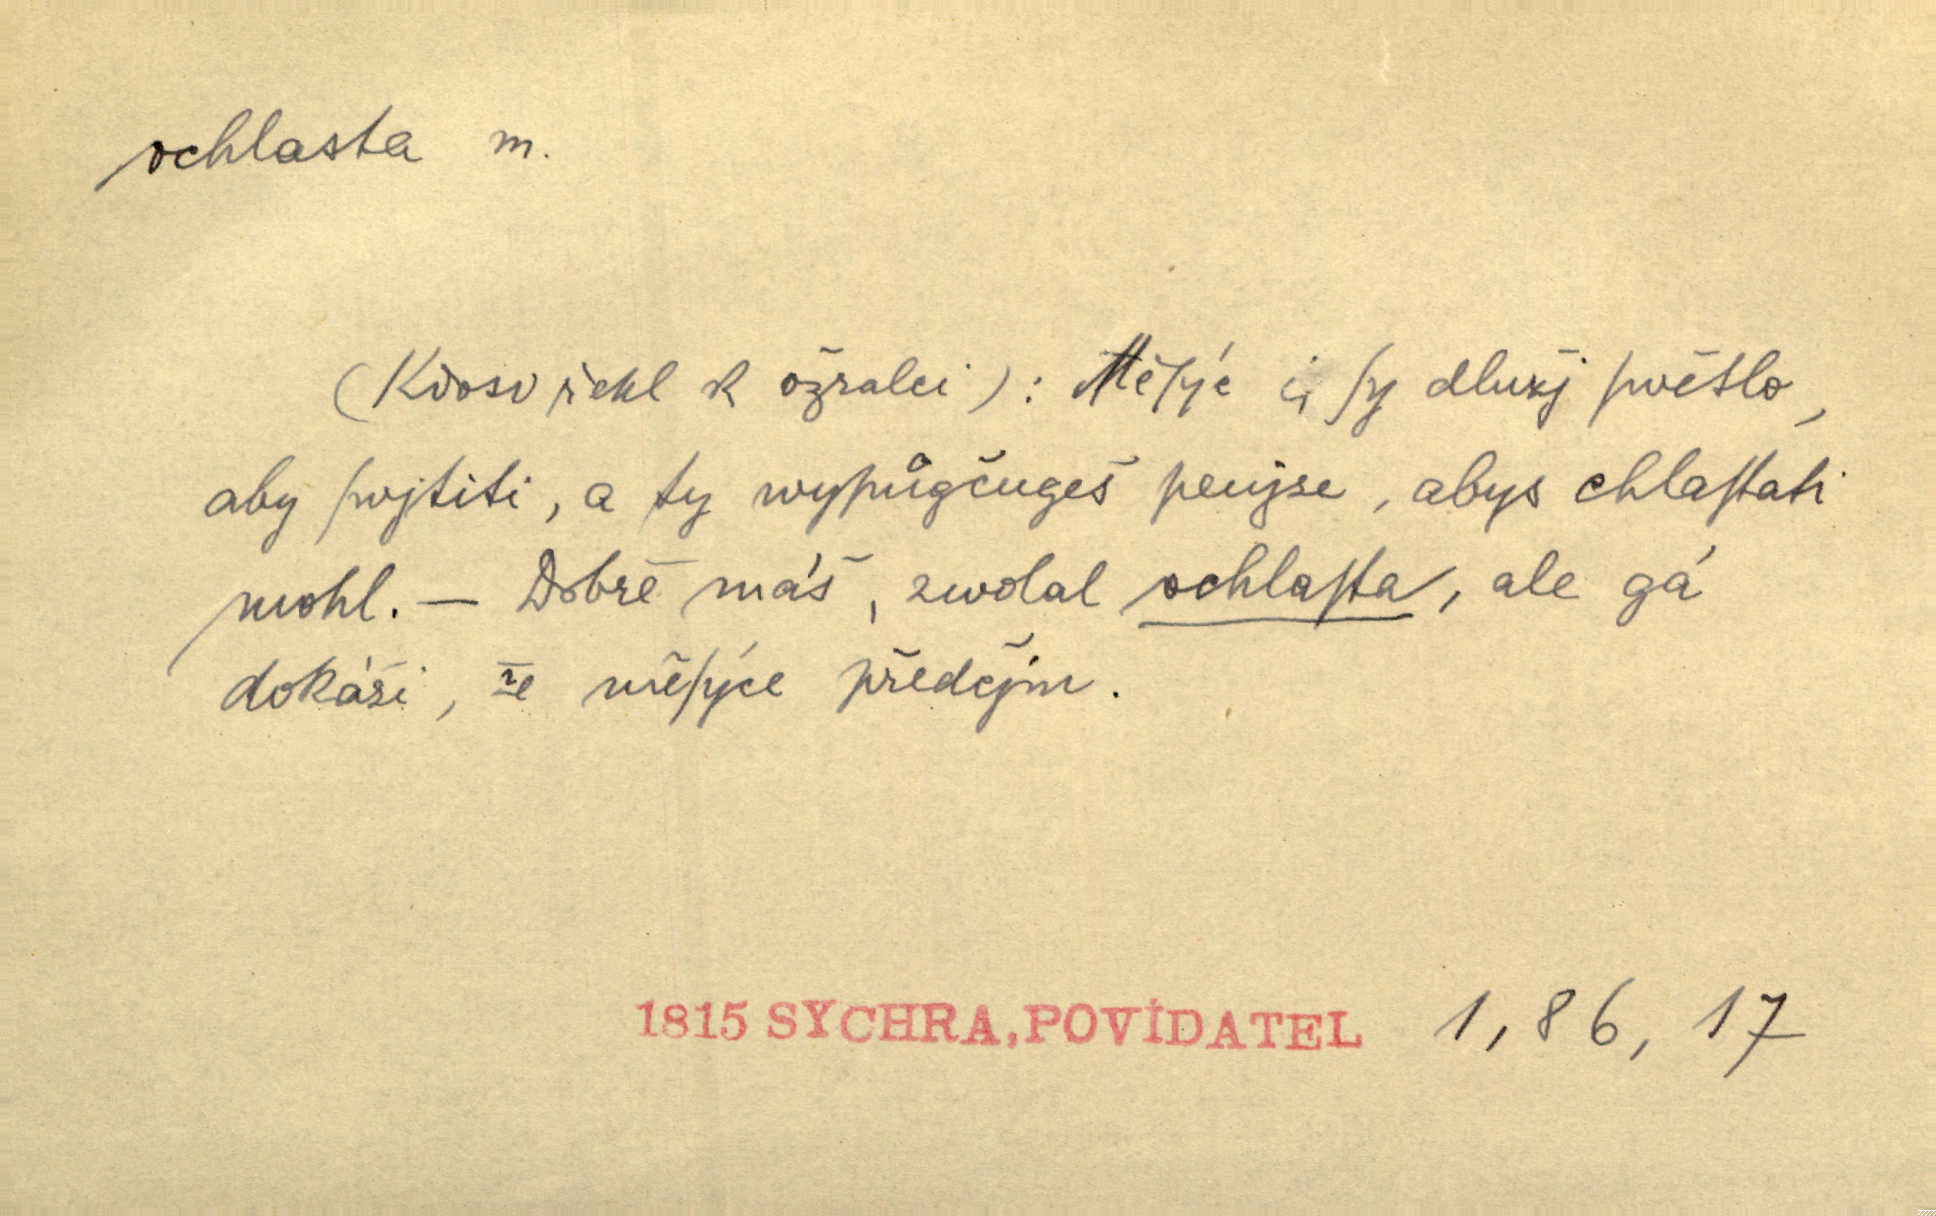 ochlasta m.
(Kdosi řekl k ožralci): Měſýc si ſy dlužj ſwětlo,
aby ſwjtiti, a ty wypůgčugeš penjze, abys chlaſtati
mohl. — Dobře máš, zwolal ochlaſta, ale gá
dokáži, že měſýce předčjm.
1815 SYCHRA, POVÍDATEL 1, 86, 17